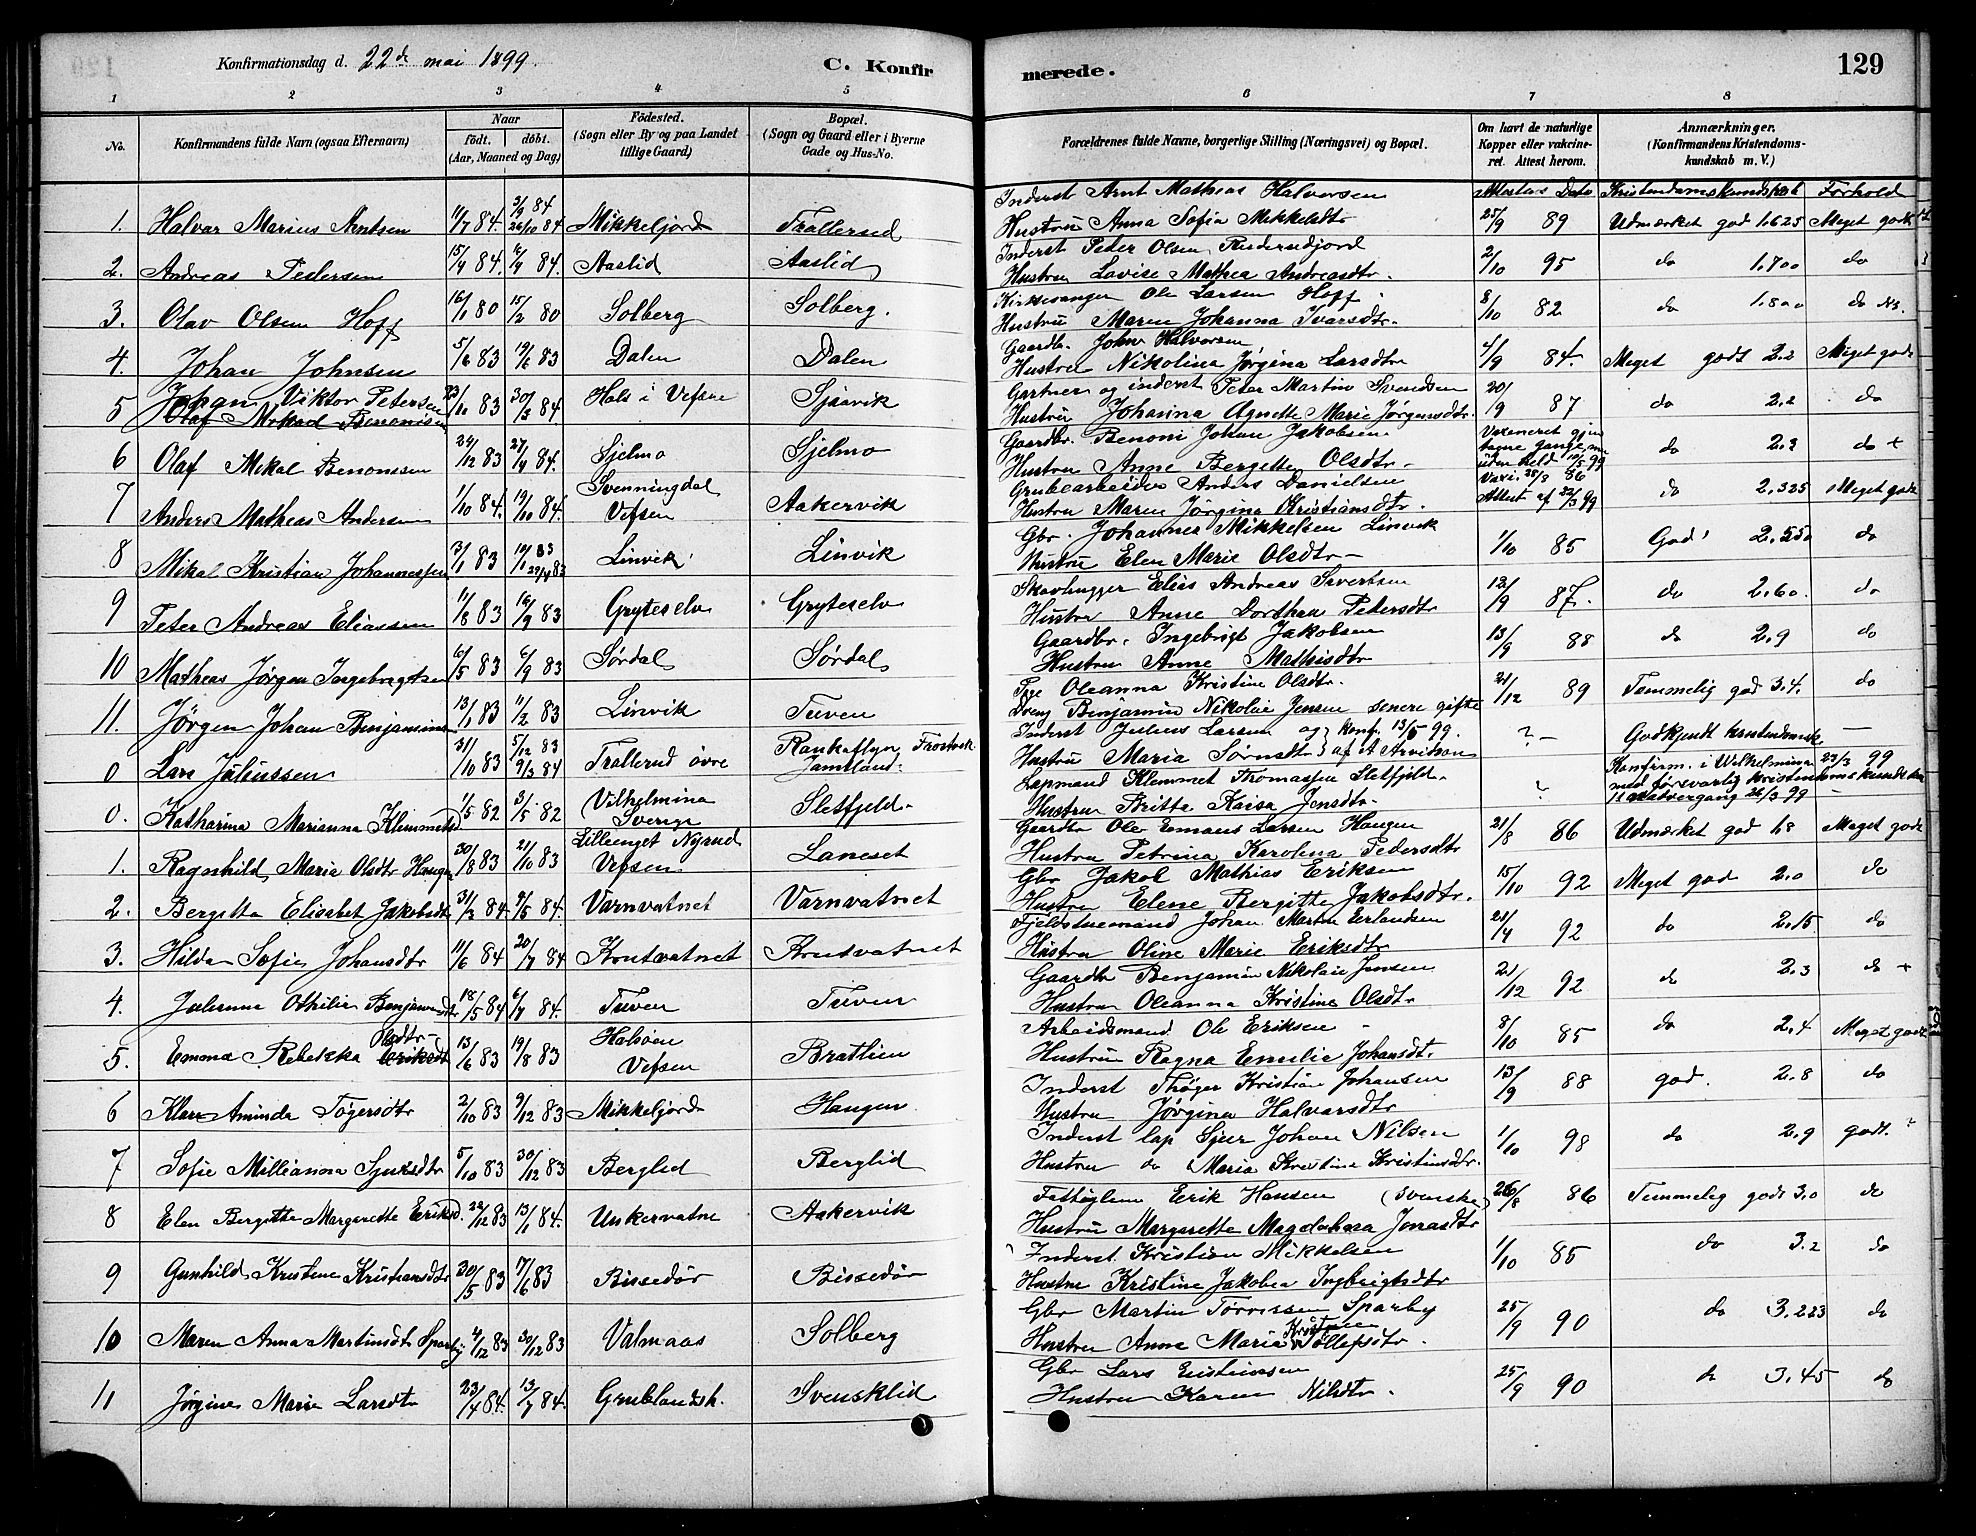 Konfirmationsdag d. 22de mai 1899.
C. Konfirmerede.
129
1 2 3 4 5 6 7 8
No.
Konfirmandens fulde Navn (ogsaa Efternavn)
Naar født. døbt. (Aar, Maaned og Dag)
Fødested. (Sogn eller By og paa Landet tillige Gaard)
Bopæl. (Sogn og Gaard eller i Byerne Gade og Hus-No.
Forældrenes fulde Navne, borgerlige Stilling (Næringsvei) og Bopæl.
Om havt de naturlige Kopper eller vakcineret. Attest herom.
Anmærkninger. (Konfirmandens Kristendomskundskab m. V.)
Attestens Dato Kristendomskundskab Forhold
1. Halvar Marius Arntsen 11/7 84. 3/9 84 26/10 84 Mikkeljord Trallerud Inderst Arnt Mathias Halvorsen
Hustru Anna Sofia Mikkelsdtr 25/9 89 Udmærket god 1.625 Meget godt
2. Andreas Pedersen 15/4 84. 84. Aaslid Aaslid Inderst Peder Olsen
Hustru Lovise Mathea Andreasdtr. 2/10 95 do 1.700 do
3. Olav Olsen Hoff 16/1 80 15/2 80 Solberg Solberg. Kirkesanger Ole Larsen Hoff
Hustru Maren Johanna Ivarsdtr. 8/10 82 do 1.800 do
4. Johan Johnsen 5/6 83 19/6 83 Dalen Dalen Gaardbr. John Halvorsen
Hustru Nikolina Jørgina Larsdtr 4/9 84. Meget godt 2.2 Meget godt
5 Johan Viktor Petersen 23/10 83 30/3 84. Hals i Vefsen Sjaavik Gartner og inderst Peter Martin Svendsen
Hustru Johanna Agnette Marie Jørgensdtr. 20/9 87 do 2.2 do
Olaf Mikal Benonisen
6 Olaf Mikal Benonisen 24/12 83 27/4 84. Sjelmo Sjelmo Gaardbr. Benoni Johan Jakobsen
Hustru Anne Bergitte Olsdtr. uden held 10/5 99 do 2.3 do +
7 Anders Mathias Andersen 1/10 84. 19/10 84. Svenningdal Vefsen Aakervik Grubearbeider Anders Danielsen
Hustru Maren Jørgina Kristiansdtr. Attest af 22/3 99 do 2.325 Meget godt
8 Mikal Kristian Johannessen 3/1 83 Linvik Linvik Gbr. Johannes Mikkelsen Linvik
Hustru Elen Marie Olsdtr 1/10 85 God 2.550 do
9 Peter Andreas Eliassen 11/8 83 16/9 83 Gryteselv Gryteselv Skovhugger Elias Andreas Sivertsen
Hustru Anne Dorthea Petersdtr 12/9 87. do 2.60. do
10 Mathias Jørgen Ingebrigtsen 6/5 83 6/9 83 Sørdal Sørdal Gaardbr. Ingebrigt Jakobsen
Hustru Anne Mathisdtr 13/9 88 do 2.9 do
11. Jørgen Johan Benjaminsen 13/1 83 11/2 83 Linvik Tuven Pige Oleanna Kristine Olsdtr.
Dreng Benjamin Nikolai Jensen senere gifte 21/12 89 Temmelig god 3.4. do
0 Lars Juliussen 31/10 83 5/12 83 9/3 84 Trallerud øvre Jamtland. Inderst Julius Larsen og konf. 13/5 99.
Hustru Maria Sørensdtr af Arvidson ? Godkjendt kristendomsk
0. Katharina Marianna Klemmetsd. 1/5 82 3/5 82 Vilhelmina Sverige Sletfjeld. Lapmand Klemmet Thomassen Sletfjeld.
Hustru Britta Kaisa Jonsdtr. ? Konfirm. i Wilhelmina 23/3 99 med forsvarlig kristendomskundskab
1. Ragnhild Maria Olsdtr Haugen 30/8 83 21/10 83 Lillenget Nyrud Vefsen Laneset Gaardbr Ole Emaus Larsen Haugen
Hustru Petrina Karolina Pedersdtr 21/8 86 Udmærket god 1.8 Meget godt
2. Bergitta Elisabet Jakobsdtr 31/3 84. 84. Varnvatnet Varnvatnet Gbr Jakob Mathias Eriksen
Hustru Elene Bergitte Jakobsdtr. 15/10 92 Meget god 2.0 do
3. Hilda Sofie Johansdtr 11/6 84 20/7 84 Krutvatnet Krutvatnet Fjeldstuemand Johan Martin Erlandsen
Hustru Oline Marie Eriksdtr 21/4 92 do 2.15 do
4. Julianna Othilie Benjaminsdtr 18/5 84 6/7 84. Tuven Tuven Gaardbr Benjamin Nikolai Jensen
Hustru Oleanna Kristine Olsdtr 21/12 92 do 2.3 do +
5. Emma Rebekka Olsdtr Eriksdtr 13/6 83 19/8 83 Halsøen Vefsen Bratlien Arbeidsmand Ole Eriksen
Hustru Ragna Emilie Johansdtr. 8/10 85 do 2.4 Meget godt
6 Klara Aminda Tøgersdtr 2/10 83 9/12 83 Mikkeljord Haugen Inderst Thøger Kristian Johansen
Hustru Jørgina Halvarsdtr 13/9 88 god. 2.8 do
7 Sofie Millianna Sjursdtr 5/10 83 30/12 83 Berglid Berglid Inderst lap Sjur Johan Nilsen
Hustru do Maria Kristine Kristinsdtr. 1/10 98 do 2.9 godt.
8 Elen Bergitte Margrette Eriksd. 22/12 83 13/1 84. Unkervatne Aakervik Erik Hansen (Svenske)
Hustru Margrette Magdalena Jonasdtr 26/8 86 Temmelig godt 3.0 do
9 Gunhild Kristine Kristiansdtr 30/5 83 7/6 83 Bissedør Bissedør Inderst Kristian Mikkelsen
Hustru Kristine Jakobea Ingbrigtsdtr 1/10 85 do 3.2 do
10 Maren Anna Martinsdtr Sparby 4/12 83 30/12 83 Valmaas Solberg Gbr Martin Torrissen Sparby
Hustru Anne Maria Kristine Tollefsdtr. 25/9 90 do 3.223 do
11 Jørgine Marie Larsdtr 23/4 84. 13/7 84. Grublandsh. Svensklid Gbr Lars Kristiansen
Hustru Karen Nilsdtr. 25/9 90 do 3.45 do